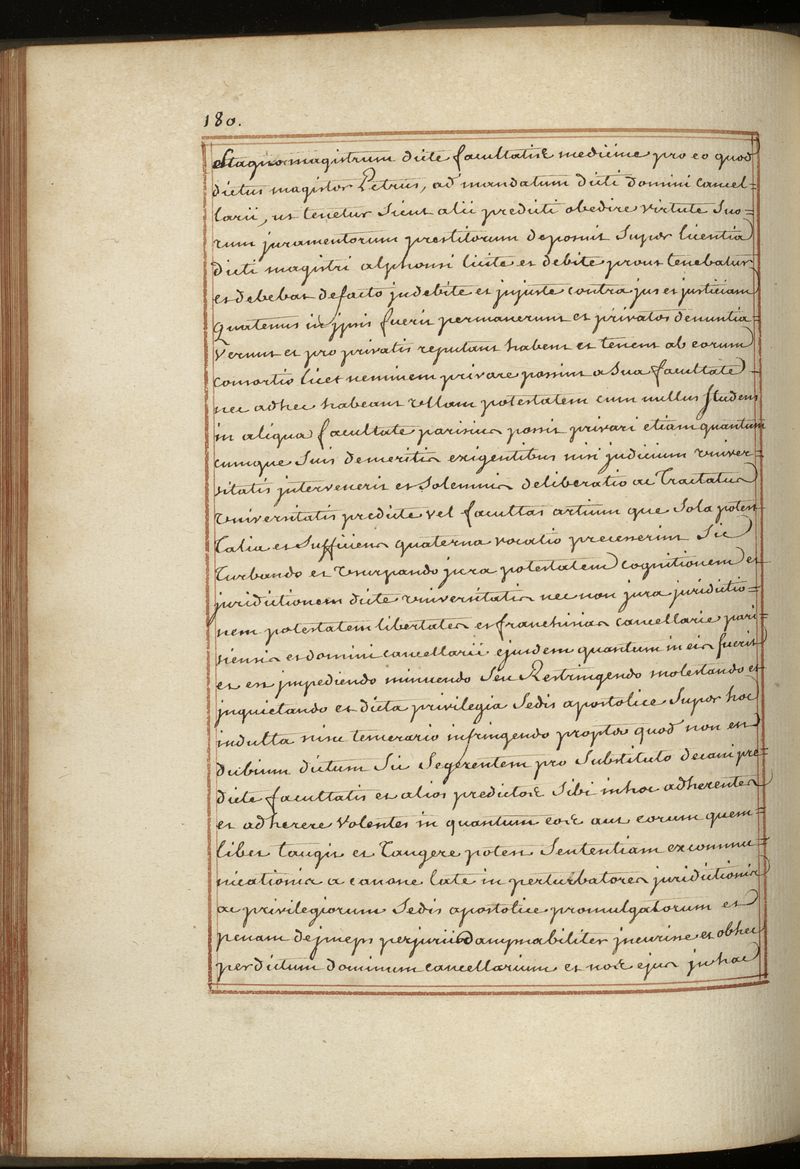 180.
Stagno magistrum dicte facultatis medicine pro eo quod
dictus magister Petrus, ad mandatum dicti domini cancel=
larii, ut tenetur sicut alii predicti obedire virtute suo=
rum juramentorum prestitorum deposuit super licentia
dicti magistri alphonsi licite et debite prout tenebatur
et debebat de facto jndebite et jnjuste contra jus et justiciam
quatenus in jpsis fuerit permanerunt et privatos denuntia
verunt et pro privatis reputant habent et tenent ab eorum
consortio licet neminem privare possint a sua facultate
nec ad hec habeant ullam potestatem cum nullus studens
in aliqua facultate parisius possit privari etiam quantum
cumque suis demeritis exigentibus nisi judicium univer=
sitatis jntervenerit et solemnis deliberatio ac tractatus
universitatis predicte vel facultas artium que sola potest
talia et sufficiens quaterna vocatio precesserint sic
turbando et usurpando jura potestatem cognitionem et
juridictionem dicte universitatis nec non jura juridictio=
nem potestatem libertates et franchisias cancellarie pari
siensis et domini cancellarii ejusdem quantum in eis fuerit
et est jmpediendo minuendo seu Restringendo molestando et
jnquietando et dicta privilegia sedis apostolice super hoc
indulta nisu temerario infringendo propter quod non est
dubium dictum sic se gerentem pro substituto decani pre=
dicte facultatis et alios predictos sibi in hoc adherentes
et adherere volentes in quantum eos aut eorum quem=
libet tangit et tangere potest sententiam excommu=
nicationis a canone late in perturbatores juridictionis
ac privilegiorum sedis apostolice promulgatorum et
penam dejnceps perjurii dampnabiliter jncurrisse et ob hec
per dictum dominum cancellarium et nos ejus jn hac